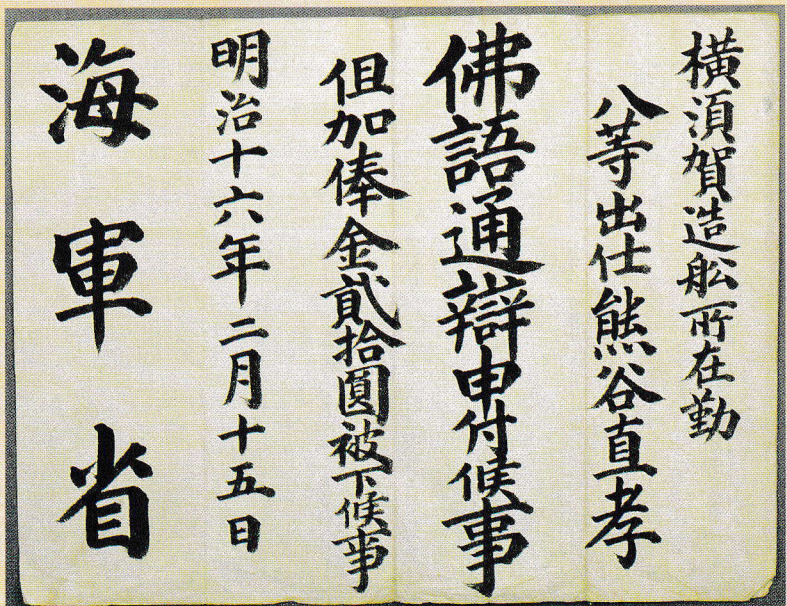 横須賀造舩所在勤
八等出仕熊谷直孝
佛語通辯申付候事
但加俸金貳拾圓被下候事
明治十六年二月十五日
海軍省